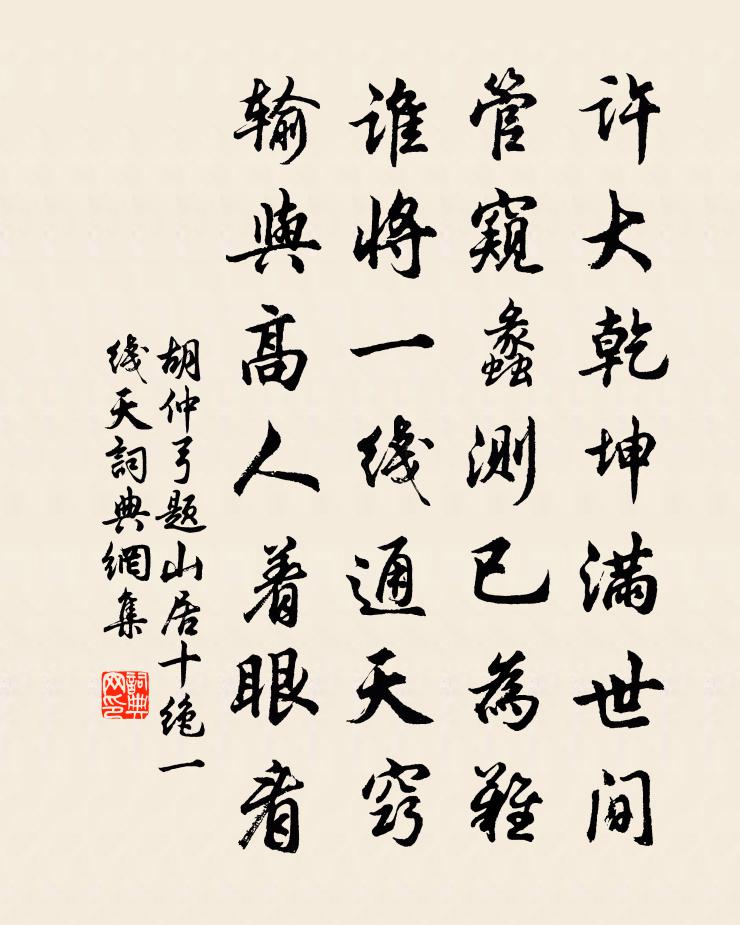 许大乾坤满世间
管窥蠡测已為難
谁將一线通天窍
输與高人着眼看
胡仲弓题山居十绝一
线天詞典網集
詞典网印